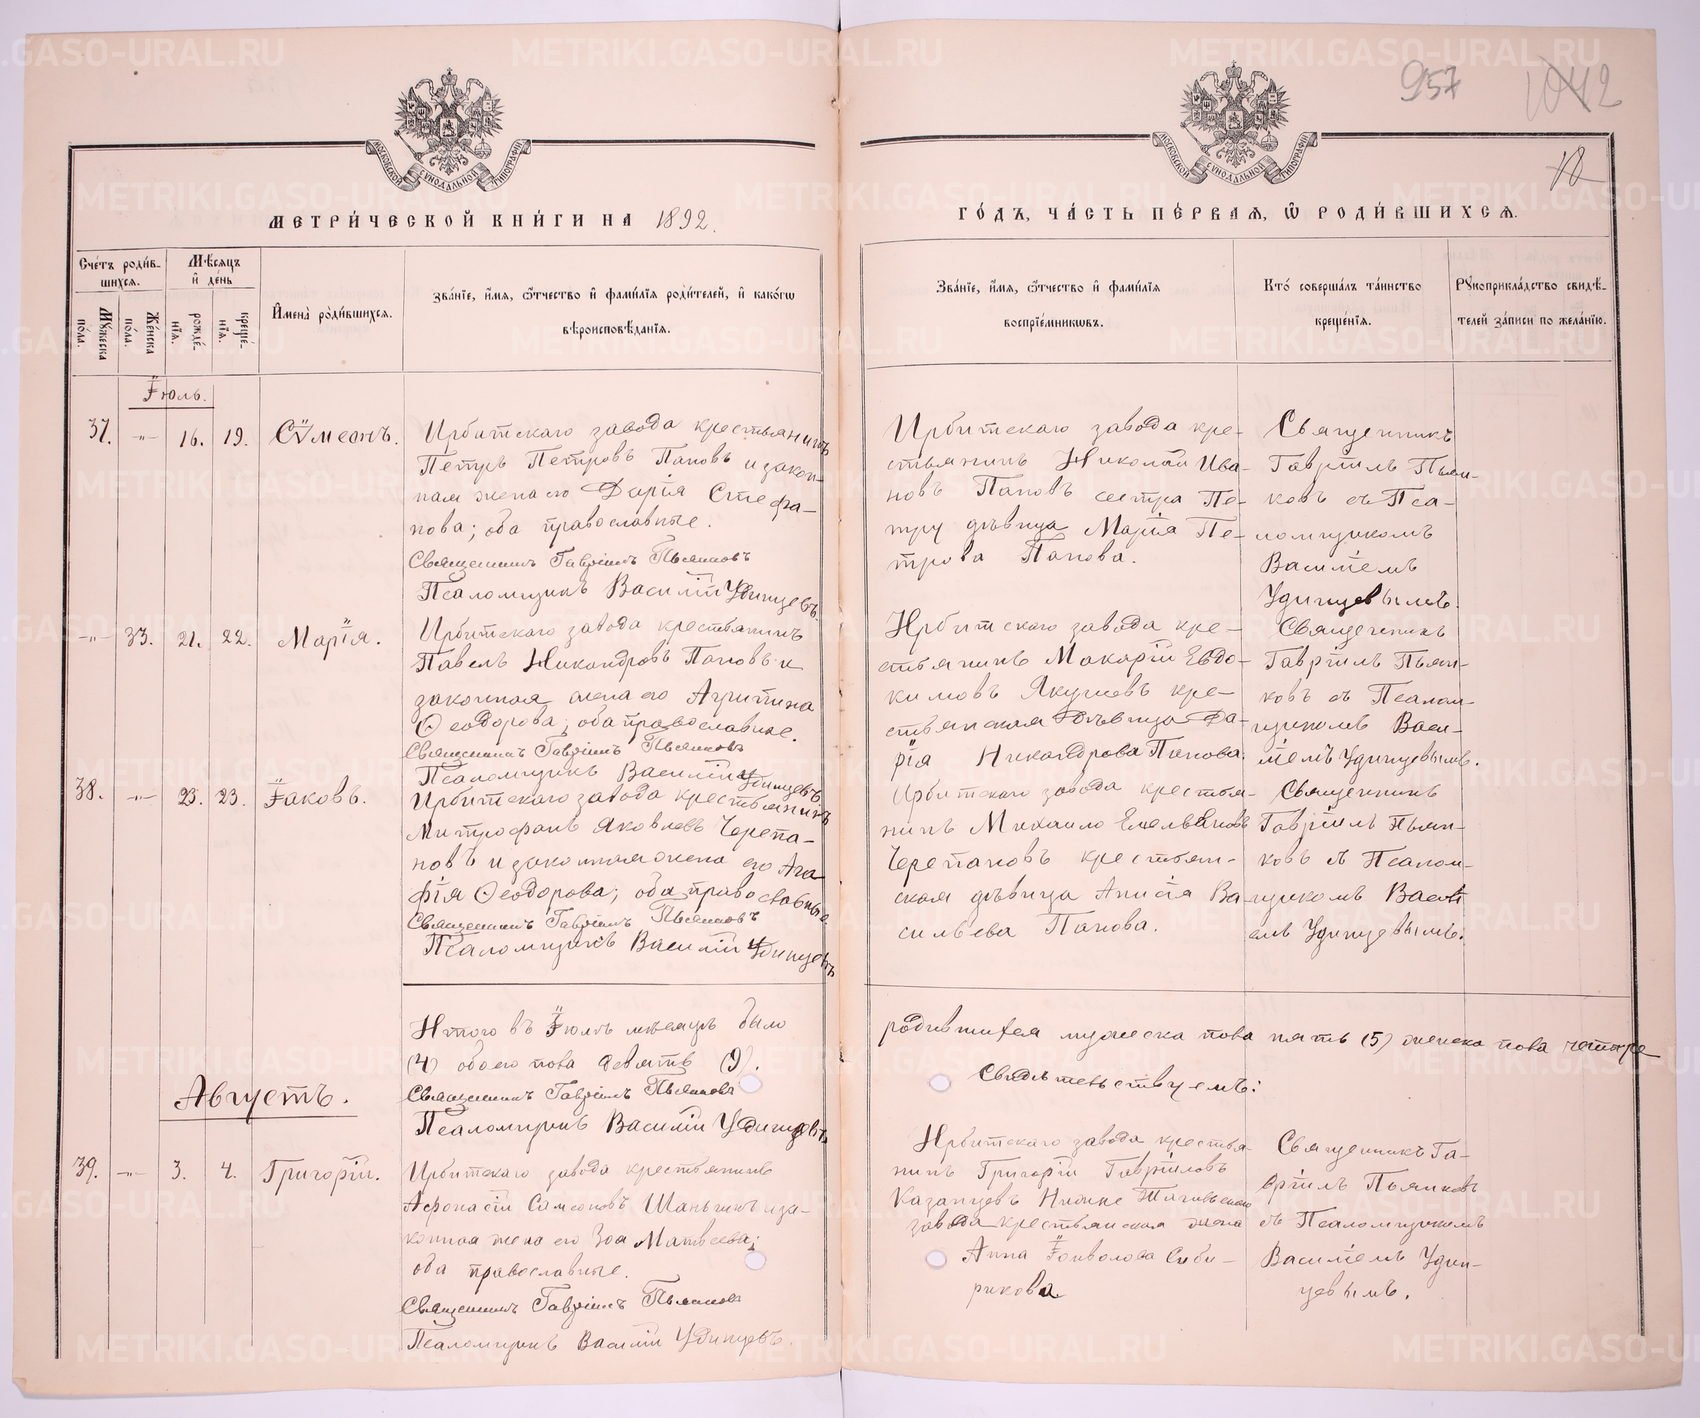 957
1042
МОСКОВСКОЙ СѴНОДАЛЬНОЙ ТИПОГРАФІИ
МОСКОВСКОЙ СѴНОДАЛЬНОЙ ТИПОГРАФІИ
МЕТРИ́ЧЕСКОЙ КНИ́ГИ НА 1892.
ГО́ДЪ, ЧА́СТЬ ПЕ́РВАѦ, Ѡ҆ РОДИ́ВШИХСѦ.
Сче́тъ роди́в-
шихсѧ.
Мѣ́сѧцъ
и҆ де́нь
Мꙋ́жеска
по́ла.
Же́нска
по́ла.
рожде́-
нїѧ.
креще́-
нїѧ.
И҆мена̀ роди́вшихсѧ.
Зва́нїе, и҆́мѧ, ѻ҆́тчество и҆ фами́лїѧ роди́телей, и҆ како́гѡ
вѣроисповѣ́данїѧ.
Зва́нїе, и҆́мѧ, ѻ҆́тчество и҆ фами́лїѧ
воспрїе́мникѡвъ.
Кто̀ соверша́лъ та́инство
креще́нїѧ.
Рꙋкоприкла́дство свидѣ́-
телей за́писи по жела́нїю.
Іюль.
37. -"- 16. 19. Сѵмеонъ.
Ирбитскаго завода крестьянинъ
Петръ Петровъ Поповъ и закон-
ная жена его Дарія Стефа-
нова; оба православные.
Священникъ Гавріилъ Пьянковъ
Псаломщикъ Василій Удинцевъ.
Ирбитскаго завода кре-
стьянинъ Николай Ива-
новъ Поповъ сестра Пе-
тру дѣвица Марія Пе-
трова Попова.
Священникъ
Гавріилъ Пьян-
ковъ съ Пса-
ломщикомъ
Василіемъ
Удинцевымъ.
-"- 33. 21. 22. Марія.
Ирбитскаго завода крестьянинъ
Павелъ Никандровъ Поповъ и
законная жена его Агрипина
Ѳеодорова, оба православные.
Священникъ Гавріилъ Пьянковъ
Псаломщикъ Василій Удинцевъ
Ирбитскаго завода кре-
стьянинъ Макарій Евдо-
кимовъ Якушевъ кре-
стьянская дѣвица Да-
рія Никандрова Попова.
Священникъ
Гавріилъ Пьян-
ковъ съ Псалом-
щикомъ Васи-
ліемъ Удинцевымъ.
38. -"- 23. 23. Іаковъ.
Ирбитскаго завода крестьянинъ
Митрофанъ Яковлевъ Черепа-
новъ и законная жена его Ага-
фія Ѳеодорова; оба православные
Священникъ Гавріилъ Пьянковъ
Псаломщикъ Василій Удинцевъ
Ирбитскаго завода крестья-
нинъ Михаило Емельяновъ
Черепановъ крестьян-
ская дѣвица Анисія Ва-
сильева Попова.
Священникъ
Гавріилъ Пьян-
ковъ съ Псалом-
щикомъ Васил
емъ Удинцевымъ.
Итого въ Іюлѣ мѣсяцѣ было
родившихся мужеска пола пять (5) женска пола четыре
(4) обоего пола девять (9).
Свидѣтельствуемъ:
Священникъ Гавріилъ Пьянковъ
Псаломщикъ Василій Удинцевъ
Августъ.
39. -"- 3. 4. Григорій.
Ирбитскаго завода крестьянинъ
Афонасій Самсоновъ Шаньгинъ и за-
конная жена его Зоя Матвѣева;
оба православные.
Священникъ Гавріилъ Пьянковъ
Псаломщикъ Василій Удинцевъ.
Ирбитскаго завода крестья-
нинъ Григорій Гавріиловъ
Казанцевъ Нижне Тагильскаго
завода крестьянская жена
Анна Сиби-
рякова
Священникъ Га-
вріилъ Пьянковъ
съ Псаломщикомъ
Василіемъ Удин-
цевымъ.